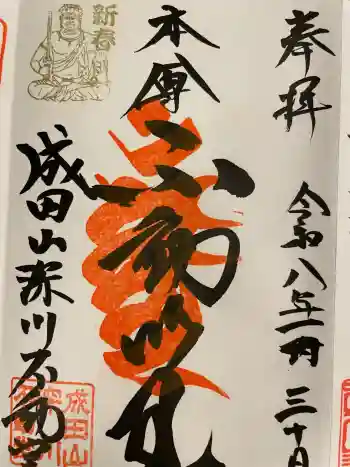 奉拝
令和八年一月三十日
本尊
不動明王
新春
成田山深川不動堂
成田山